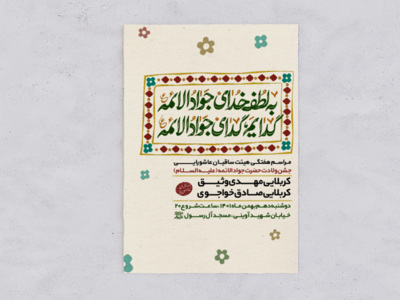 به لطف خدای جواد الائمه
گدایم گدای جواد الائمه
مراسم هفتگی هیئت ساقیان عاشورایی
جشن ولادت حضرت جوادالائمه(علیه السلام)
کربلایی مهدی وثیق
کربلایی صادق خواجوی
دوشنبه دهم بهمن ماه ۱۴۰۱، ساعت شروع ۲۰
خیابان شهید آوینی، مسجد آل رسول